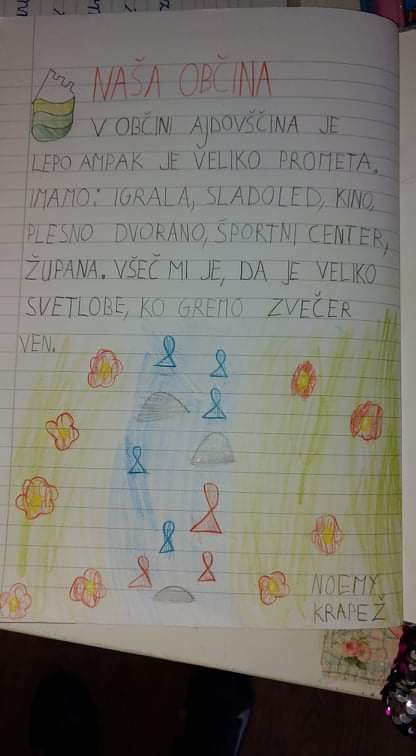 NAŠA OBČINA
V OBČINI AJDOVŠČINA JE
LEPO AMPAK JE VELIKO PROMETA.
IMAMO: IGRALA, SLADOLED, KINO,
PLESNO DVORANO, ŠPORTNI CENTER,
ŽUPANA. VŠEČ MI JE, DA JE VELIKO
SVETLOBE, KO GREMO ZVEČER
VEN.
NOEMY
KRAPEŽ